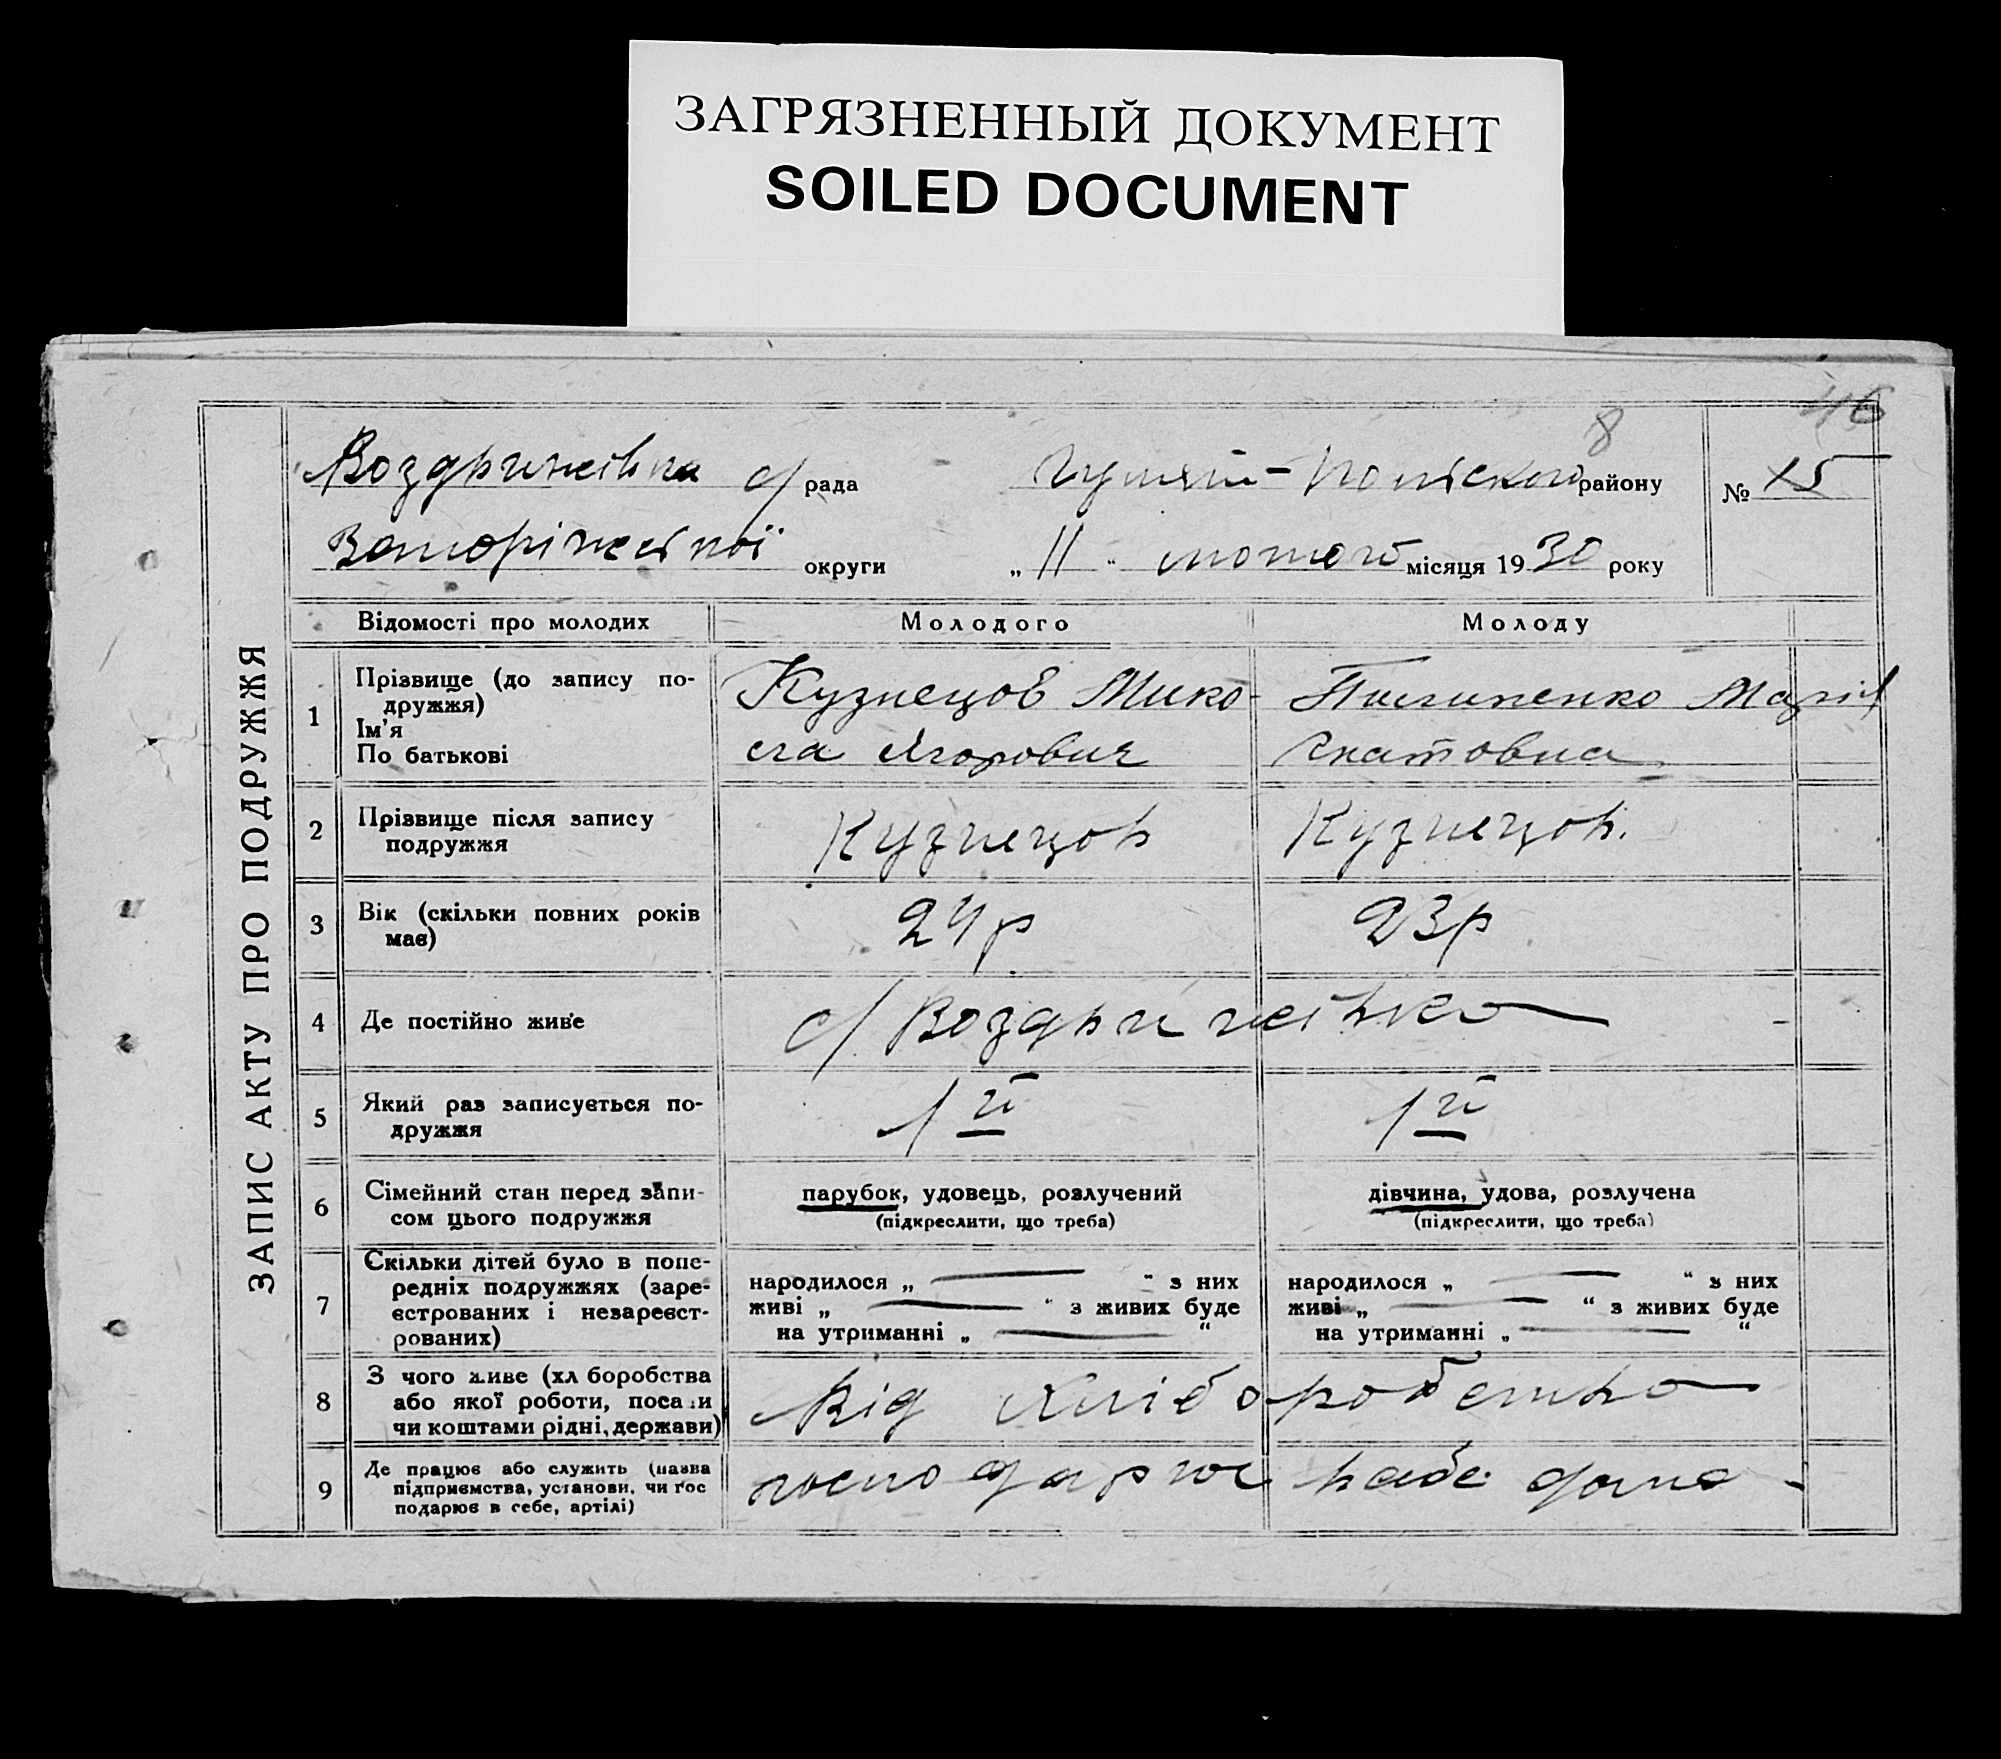 ЗАГРЯЗНЕННЫЙ ДОКУМЕНТ
SOILED DOCUMENT
46
8
Воздвижівка с/рада Гуляй-Полієского району № 15
Запоріжської округи „11“ лютого місяця 1930 року
ЗАПИС АКТУ ПРО ПОДРУЖЖЯ
Відомості про молодих Молодого Молоду
1 Прізвище (до запису по-
дружжя)
Ім'я
По батькові
Кузнецов Мико-
ла Ягорович
Марія
Гнатовна
2 Прізвище після запису
подружжя
Кузнецов Кузнецов.
3 Вік (скільки повних років
має)
24 р 23 р
4 Де постійно живе с/Воздвижівка
5 Який раз записується по-
дружжя
1й 1й
6 Сімейний стан перед запи-
сом цього подружжя
парубок, удовець, розлучений
(підкреслити, що треба)
дівчина, удова, розлучена
(підкреслити, що треба)
7 Скільки дітей було в попе-
редніх подружжях (заре-
єстрованих і незареєст-
рованих)
народилося „ — “ з них
живі „ — “ з живих буде
на утриманні „ — “
народилося „ — “ з них
живі „ — “ з живих буде
на утриманні „ — “
8 З чого живе (хл боробства
або якої роботи, поса и
чи коштами рідні, держави)
Від хліборобства
9 Де працює або служить (назва
підприємства, установи, чи гос
подарює в себе, артілі)
господарює в себе дома